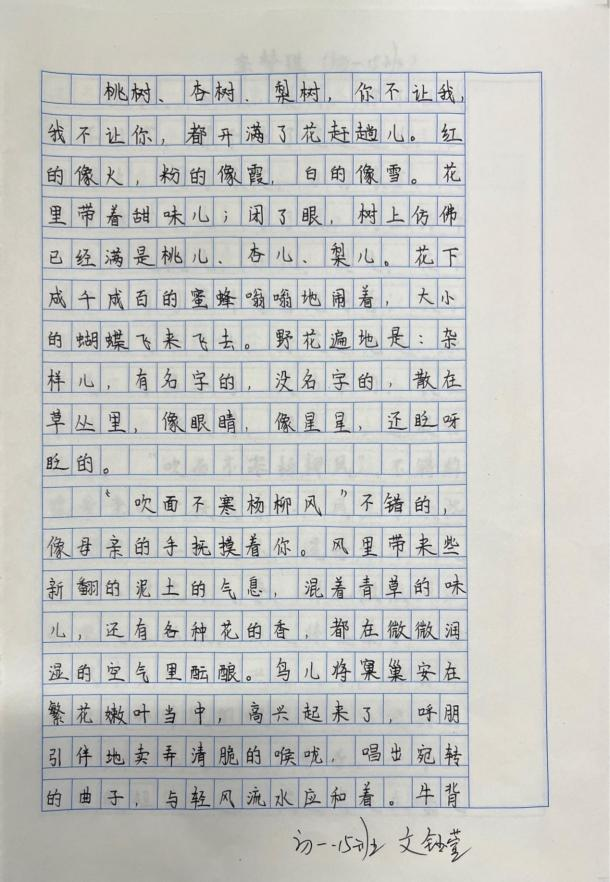 桃树、杏树、梨树，你不让我，
我不让你，都开满了花赶趟儿。红
的像火，粉的像霞，白的像雪。花
里带着甜味儿；闭了眼，树上仿佛
已经满是桃儿、杏儿、梨儿。花下
成千成百的蜜蜂嗡嗡地闹着，大小
的蝴蝶飞来飞去。野花遍地是：杂
样儿，有名字的，没名字的，散在
草丛里，像眼睛，像星星，还眨呀
眨的。
“吹面不寒杨柳风”不错的，
像母亲的手抚摸着你。风里带来些
新翻的泥土的气息，混着青草的味
儿，还有各种花的香，都在微微润
湿的空气里酝酿。鸟儿将窠巢安在
繁花嫩叶当中，高兴起来了，呼朋
引伴地卖弄清脆的喉咙，唱出宛转
的曲子，与轻风流水应和着。牛背
初一.15班 文钰莹